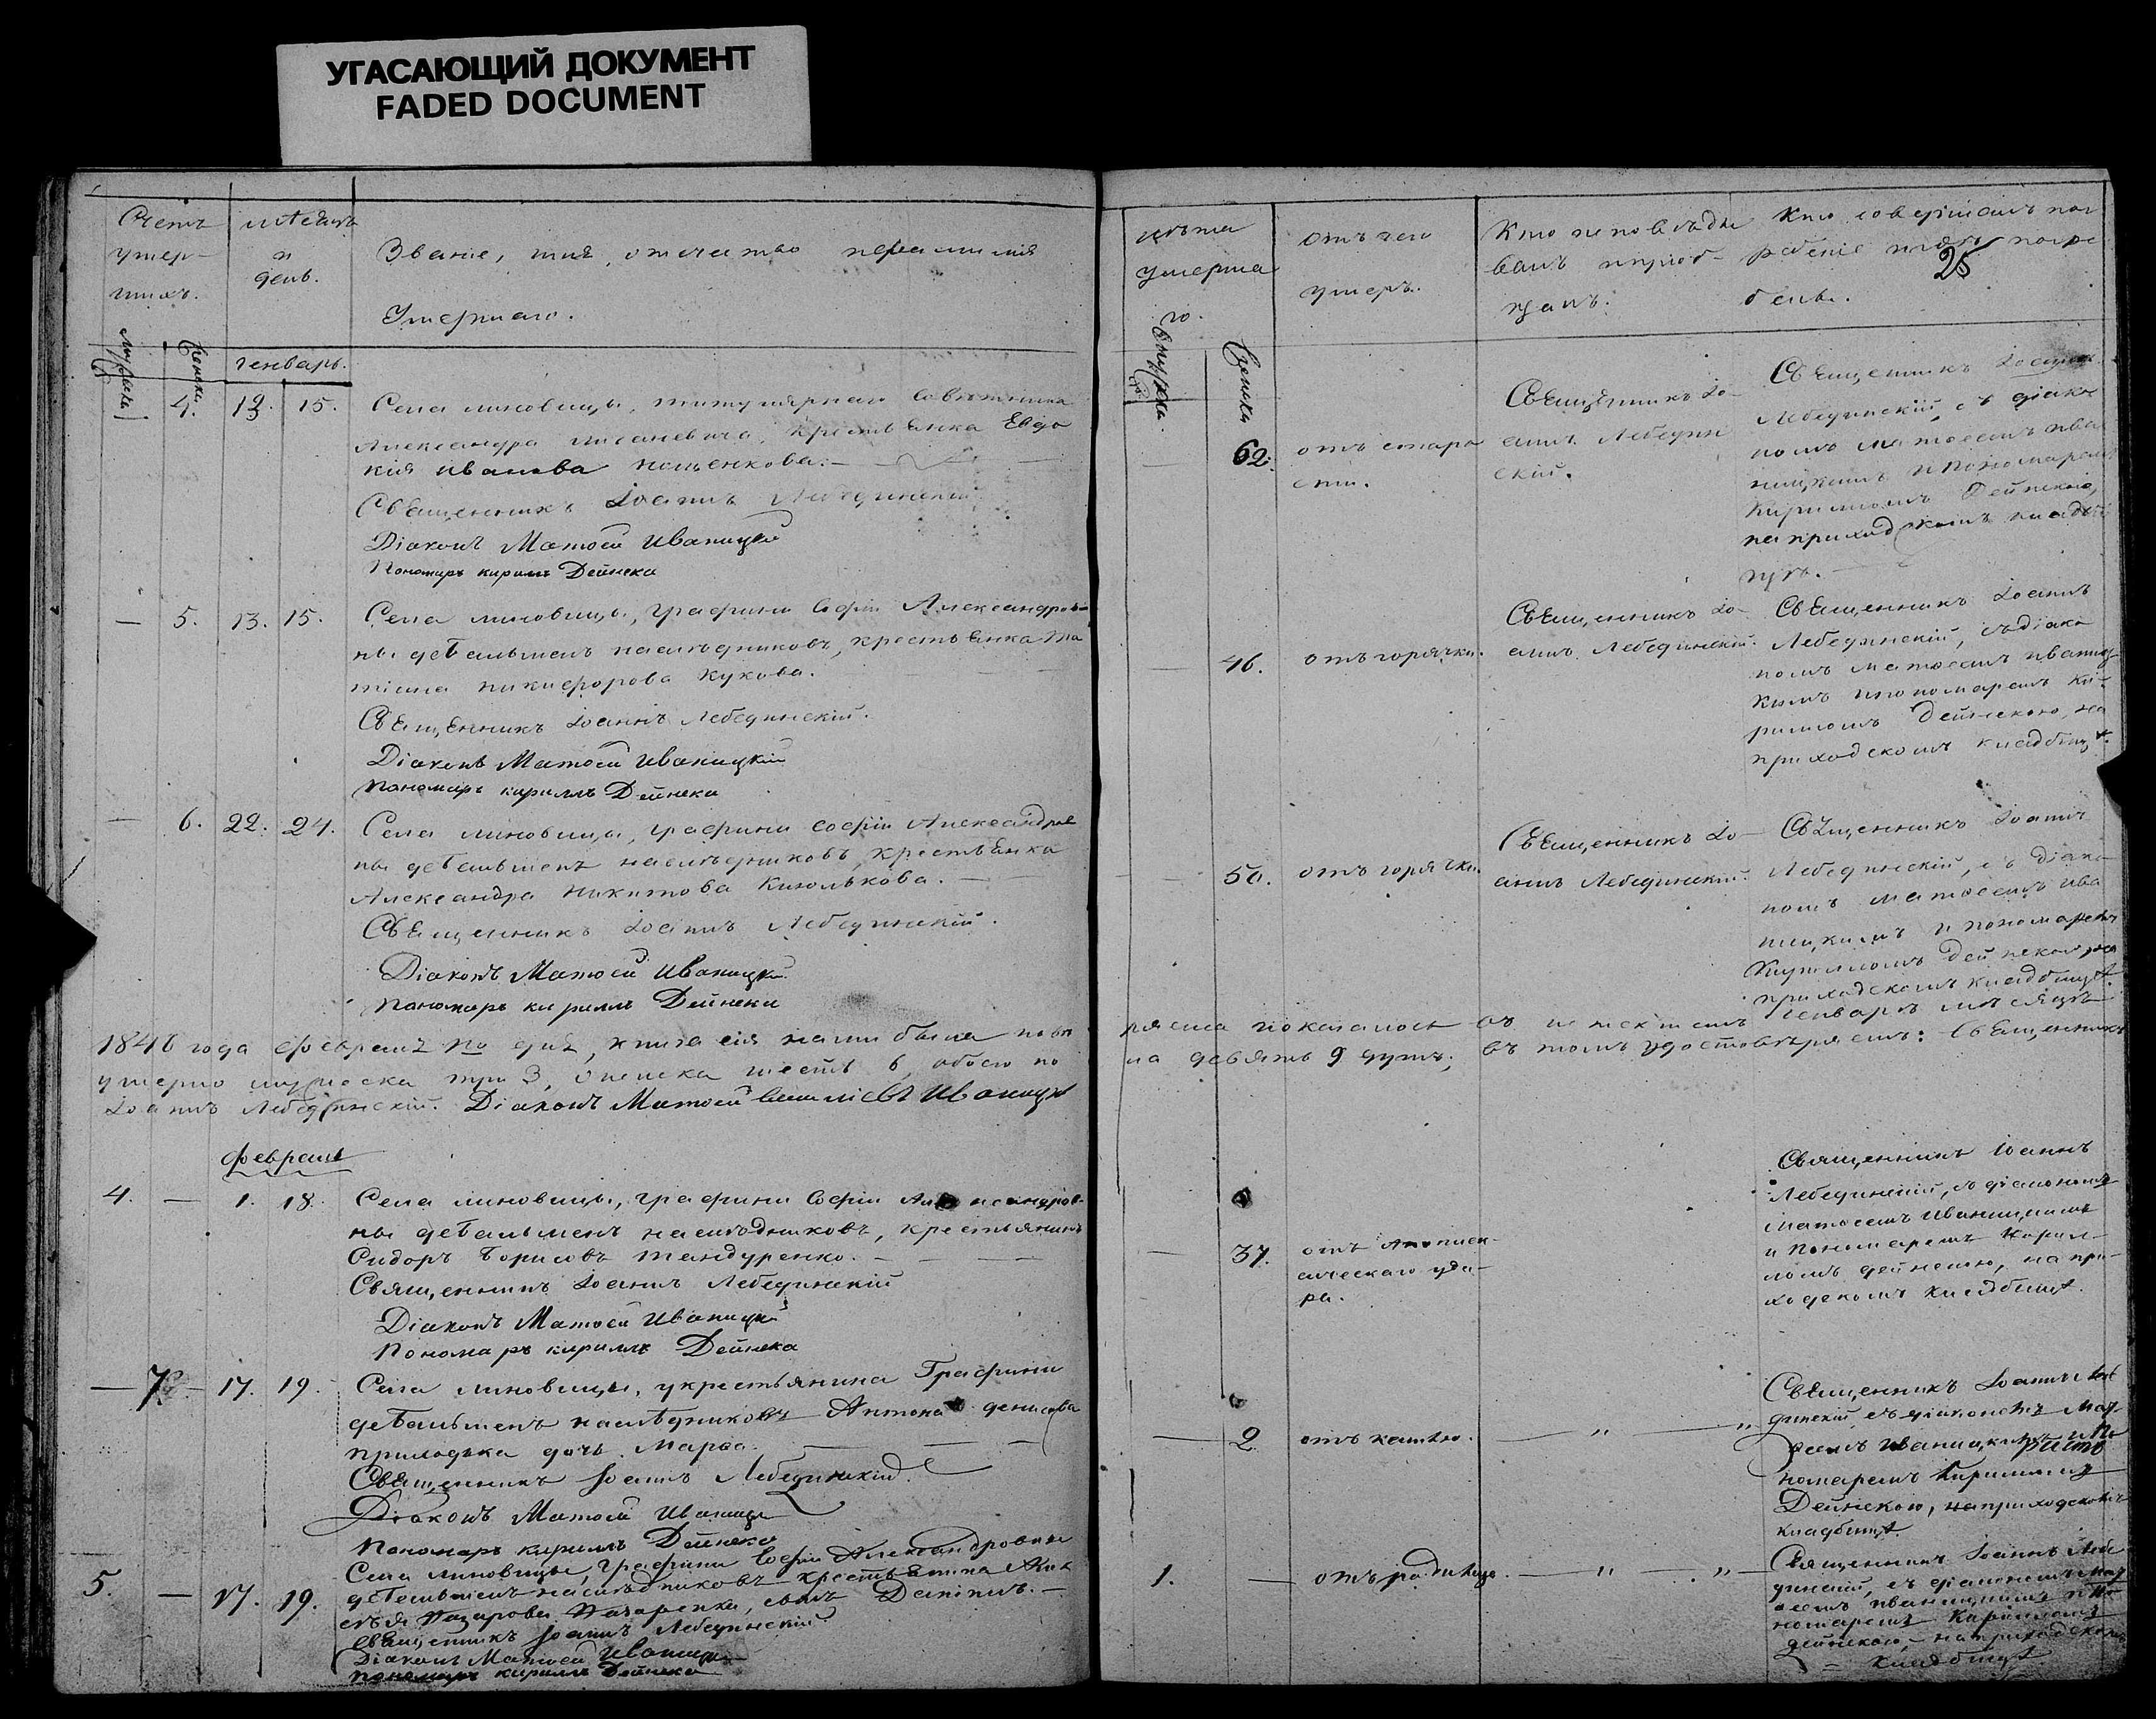 УГАСАЮЩИЙ ДОКУМЕНТ
FADED DOCUMENT
Счетъ
умер-
шихъ.
мѣсяцъ
и
день.
Званіе, имя, отчество
Умершаго.
Женска.
генварь.
4. 13. 15. Села Линовицы, титулярнаго Совѣтника
Александра крестьянка Евдо
кія Иванова
Священникъ Іоаннъ Лебединскій
Діаконъ Матѳей Иваницкій
Пономарь Кириллъ Дейнека
— 5. 13. 15. Села Линовицы, графини Софіи Александров-
ны деБальменъ наслѣдниковъ, крестьянка Та
тіана Никифорова Кукова.
Священникъ Іоаннъ Лебединскій.
Діаконъ Матѳей Иваницкій
Пономарь Кириллъ Дейнека
— 6. 22. 24. Села Линовицы, графини Софіи Александров
ны деБальменъ наслѣдниковъ, крестьянка
Александра Никитова
Священникъ Іоаннъ Лебединскій.
Діаконъ Матѳей Иваницкій
Пономарь Кириллъ Дейнека
года февраля дня, книга сія нами была повѣ
умерло мужеска три 3, женска шесть 6, обоего по
Іоаннъ Лебединскій. Діаконъ Матѳей Иваницкій
февраль
4. — 1. 18. Села Линовицы, графини Софіи Александров-
ны деБальменъ наслѣдниковъ, крестьянинъ
Сидоръ Борисовъ Тандуренко. —
Священникъ Іоаннъ Лебединскій
Діаконъ Матѳей Иваницкій
Пономарь Кириллъ Дейнека
— 7. — 17. 19. Села Линовицы, у крестьянина Графини
деБальменъ наслѣдниковъ Антона Денисова
дочь Марѳа.
Священникъ Іоаннъ Лебединскій.
Діаконъ Матѳей Иваницкій
Пономарь Кириллъ Дейнека
5. — 17. 19. Села Линовицы, графини Софіи Александровны
деБальменъ наслѣдниковъ крестьянина
Назарова Назаренка, сынъ Даніилъ. —
Священникъ Іоаннъ Лебединскій
Діаконъ Матѳей Иваницкій
Пономарь Кириллъ Дейнека
лѣта
умерша
го.
Женска
отъ чего
умеръ.
Кто исповѣды
валъ и пріоб-
щалъ.
Кто совершалъ пог
ребеніе и гдѣ погре
бенъ.
25
— 62. отъ старо
сти.
Священникъ Іо-
аннъ Лебедин
скій.
Священникъ Іоаннъ
Лебединскій, съ діако
номъ Матѳеемъ Ива
ницкимъ и Пономаремъ
Кирилломъ Дейнекою,
на приходскомъ кладби
щѣ. —
— 46. отъ горячки.
Священникъ Іо-
аннъ Лебединскій.
Священникъ Іоаннъ
Лебединскій, съ діако
номъ Матѳеемъ Иваниц-
кимъ и пономаремъ Ки-
рилломъ Дейнекою, на
приходскомъ кладбищѣ.
— 50. отъ горячки.
Священникъ Іо-
аннъ Лебединскій.
Священникъ Іоаннъ
Лебединскій, съ діако
номъ Матѳеемъ Ива
ницкимъ и пономаремъ
Кирилломъ Дейнекою, на
приходскомъ кладбищѣ.
ряема и оказалось въ генварѣ мѣсяцѣ
ла девять 9 душъ; въ томъ удостовѣряемъ: Священникъ
— 37. отъ Апоплек-
сическаго уда-
ра.
Священникъ Іоаннъ
Лебединскій, съ діакономъ
Матѳеемъ Иваницкимъ
и Пономаремъ Кирил-
ломъ Дейнекою, на при-
ходскомъ кладбищѣ.
— 2. отъ кашлю. — " — " —
Священникъ Іоаннъ Лебе
динскій, съ діакономъ Мат
ѳеемъ Иваницкимъ и По
номаремъ Кирилломъ
Дейнекою, на приходскомъ
кладбищѣ.
1. — отъ родимца. — " — " —
Священникъ Іоаннъ Лебе
динскій, съ діакономъ Мат
ѳеемъ Иваницкимъ и По
номаремъ Кирилломъ
Дейнекою, на приходскомъ
кладбищѣ